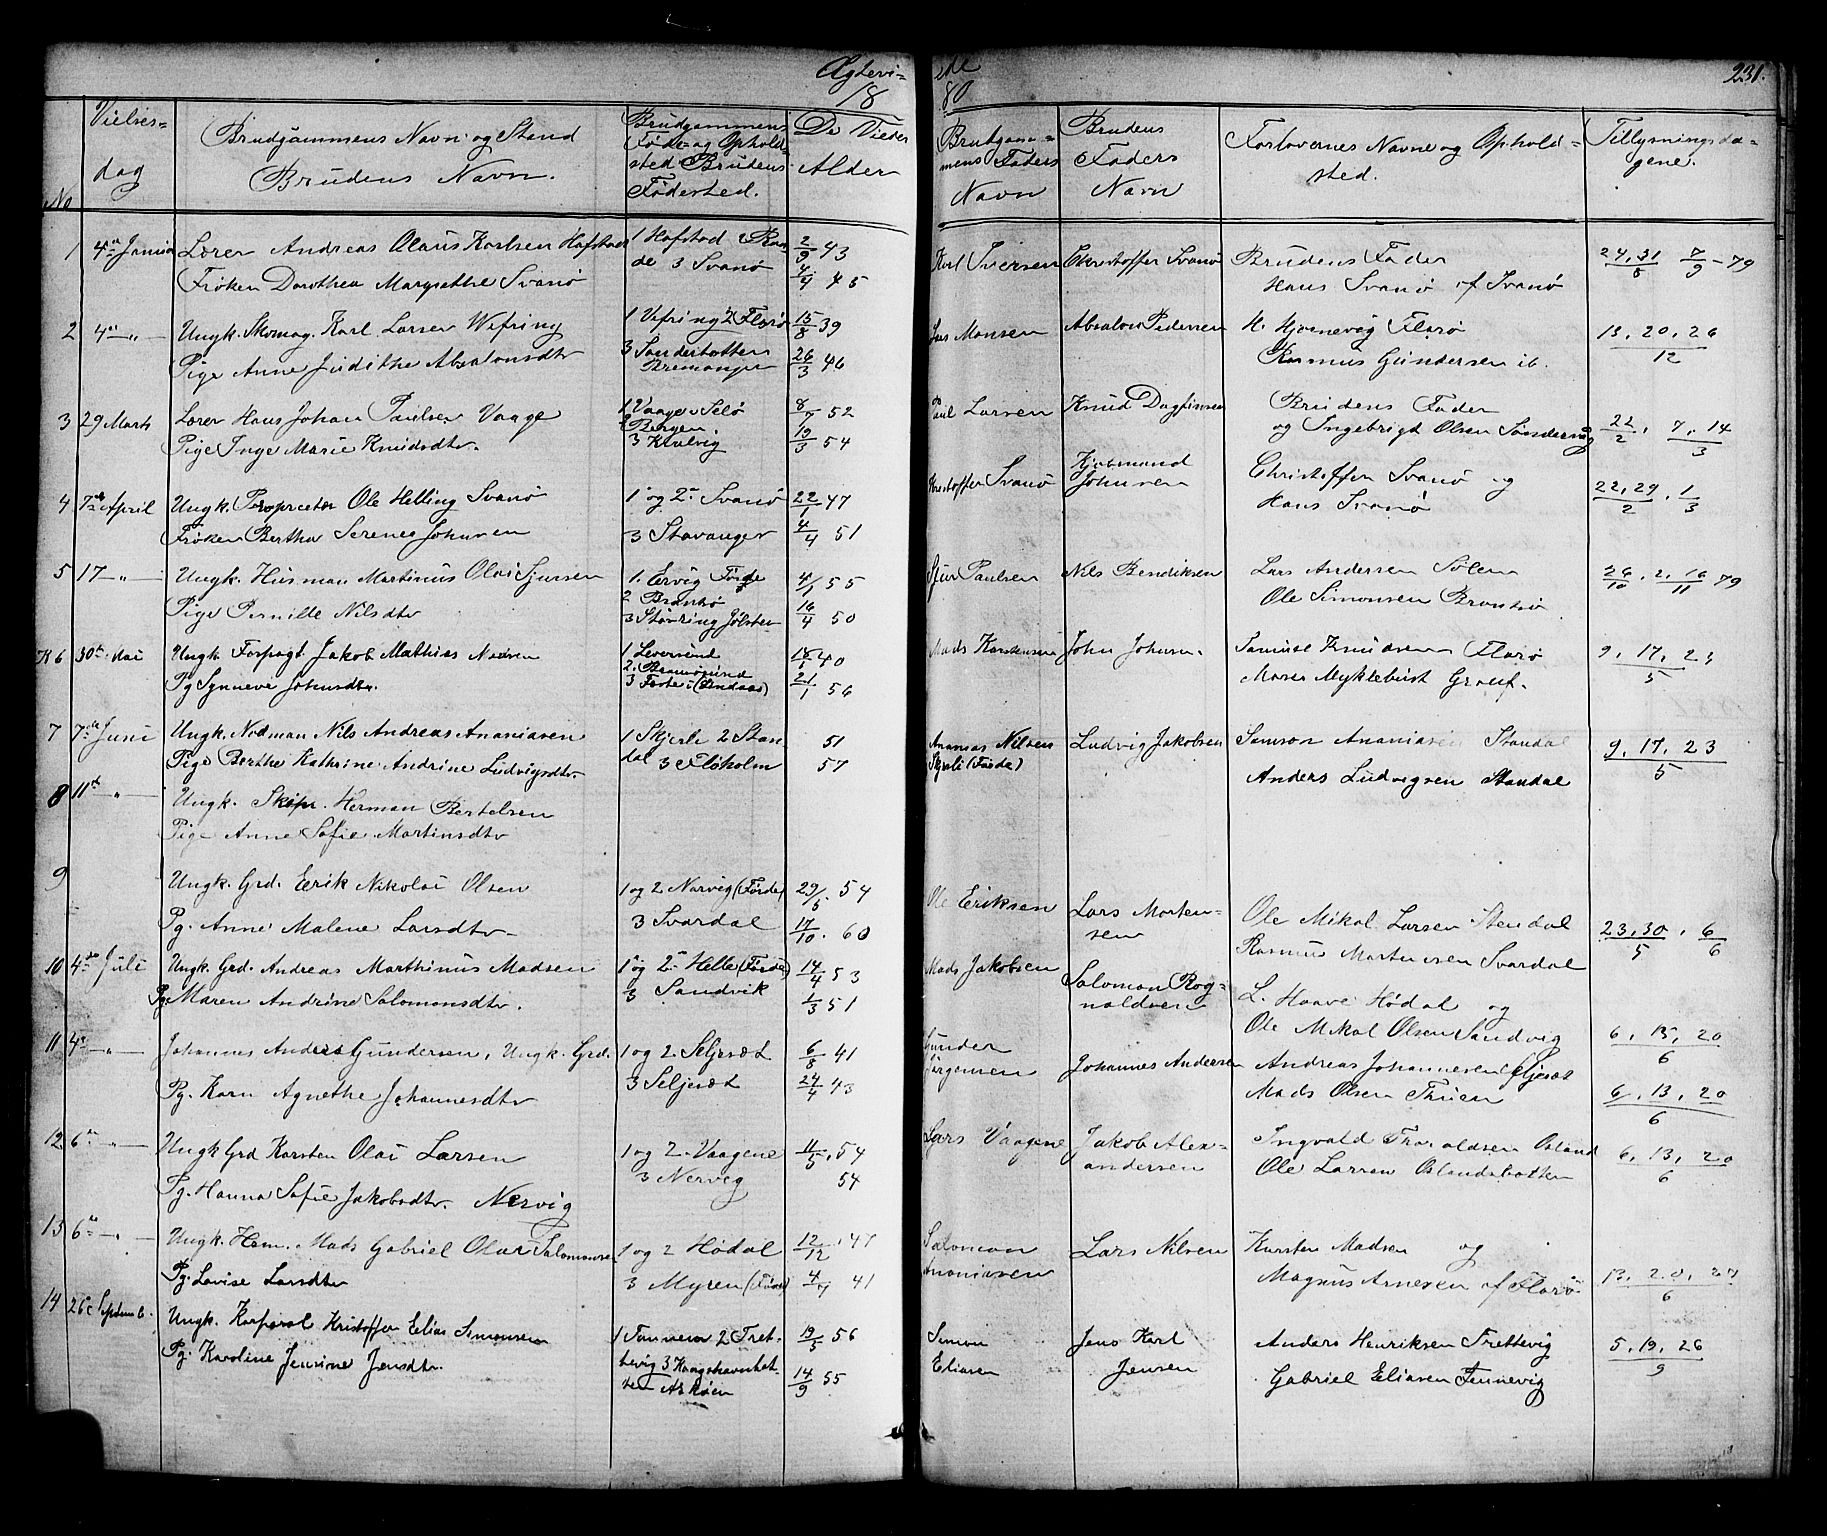 Ægtevi=
de
18
80
231.
No
Vielses=
dag
Brudgammens Navn og Stand
Brudens Navn.
Brudgammens
Føde= og Ophold=
sted Brudens
Fødested.
De Viedes
Alder
Brudgam=
mens Faders
Navn
Brudens
Faders
Navn
Forlovernes Navne og Ophold=
sted.
Tillysningsda=
gene.
1 4de Januar Lærer Andreas Olaus Karlsen Hafstad 1 Hafstad 2 2/9 43 Karl Iversen Christoffer Svanø Bruden's Fader 24, 31/8 7/9 - 79
de 3 Svanø
Frøken Dorothea Margrethe Svanø 4/4 45 Hans Svanø af Svanø
2 4de " Ungk. Skomag. Karl Larsen Vefring 1 Vefring 2 Florø 15/8 39 Lars Monsen Absalon Pedersen H. Hjornevåg Florø 13, 20, 26/12
Pige Anne Judithe Absalonsdtr 3
Bremanger 26/3 46 Rasmus Gundersen ib.
3 29 Marts Lærer Hans Johan Paulsen Vaage 1 Vaage Selø 52 Paul Larsen Knud Dagfinsen Brudens Fader 22/2, 7, 14/3
2 Bergen og Ingebrigt Olsen
Pige Inge Marie Knudsdtr. 3 19/3 54
4 7de April Ungk. Proprietær Ole Helling Svanø 1 og 2 Svanø 22/1 47 Christoffer Svanø Kjøbmand Johnsen Christoffer Svanø og 22, 29/2, 1/3
Frøken Bertha Serene Johnsen 3 Stavanger 4/4 51 Hans Svanø
5 17 " Ungk. Husman Martinus Olai Sjursen 1. Ervig Førde 4/1 55 Sjur Paulsen Nils Bendiksen Lars Andersen Solem 26/10, 2, 16/11 79
2 Brandsø
Pige Pernille Nilsdtr 3 Støvring Jølster 16/4 50 Ole Simonsen Brandsø
6 30te Mai Ungk. Forpagt. Jakob Mathias Madsen 1 Leversund 18/1 40 Mads Karstensen John Johnsen Samuse Knudsen Florø 9, 17, 23/5
2.
Pg Synneve Johnsdtr. 3 (Lindaas) 21/1 56 Myklebust
7 7de Juni Ungk. Nodman Nils Andreas Ananiasen 1 Skjerli 2 Stan 51 Ananias Nilsen Ludvig Jakobsen Samson Ananiasen Standal 9, 17, 23/5
dal 3 Floholm Skjerli (Førde)
Pige Berthe Kathrine Andrine Ludvigsdtr 57 Anders Ludvigsen Standal
8 11te " Ungk. Skipr. Herman Bertelsen
Pige Anne Sofie Martinsdtr
9 Ungk. Grd. Eerik Nikolai Olsen 1 og 2 Narvig (Førde) 29/5 54 Ole Eriksen Lars Morten=
sen Ole Mikal Larsen Standal 23, 30/5, 6/6
Pg. Anne Malene Larsdtr 3 Svardal 17/10. 60 Rasmus Mortensen Svardal
10 4de Juli Ungk. Grd. Andreas Marthinus Madsen 1 og 2 Helle (Førde) 14/4 53 Mads Jakobsen Salomon Rog=
naldsen L. Haave Hødal og 6, 13, 20/6
Pg Maren Andrine Salomonsdtr. 3 Sandvik 1/3 51 Ole Mikal Olsen Sandvig
11 4de " Johannes Anders Gundersen, Ungk. Grd. 1 og 2 Seljesæt 6/8 41 Gunder
Jørgensen Johannes Andersen Andreas Johannesen Seljesæt 6, 13, 20/6
Pg. Karn Agnethe Johannesdtr 3 Seljesæt 24/4 43 Mads Olsen
12 6te " Ungk Grd Karsten Olai Larsen 1 og 2 Vaagene 11/5, 54 Lars Vaagene Jakob Alex=
andersen Ingvald Thoraldsen Osland 6, 13, 20/6
Pg. Hanna Sofie Jakobsdtr. Nervig 3 Nerveg 54 Ole Larsen Oslandsbotten
13 6te " Ungk. Hem. Mads Gabriel Olai Salomonsen 1 og 2 Hødal 12/12, 47 Salomon
Ananiasen Lars Nilsen Karsten Madsen og 13, 20, 27/6
Pg. Lovise Larsdtr 3 Myren (Førde) 41 Magnus Arnesen af Florø
14 26de Septemb. Ungk. Korporal Kristoffer Elias Simonsen 1 2 Tret= 19/5 56 Simon
Eliasen Jens Karl
Jensen Anders Henriksen Trettevig 5, 19, 26/9
Pg. Karoline Jensine Jensdtr. tevig 3
Askøen 14/9 55 Gabriel Eliasen Tennevig